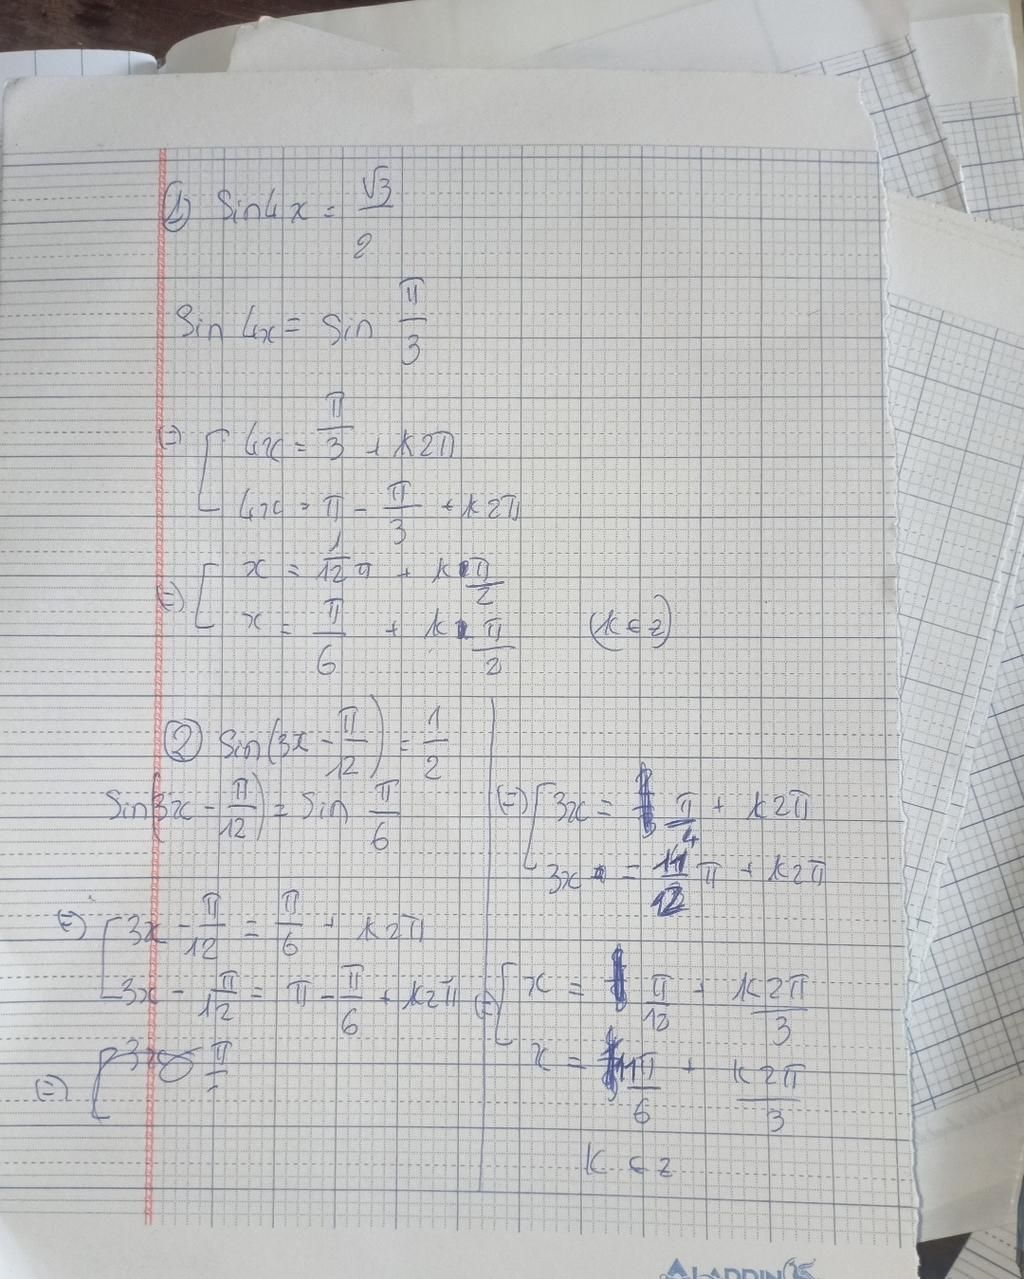 ① Sin4x = √3/2
Sin 4x = Sin π/3
(=) [ 4x = π/3 + k2π
4x = π - π/3 + k2π
(=) [ x = 1/12 π + k π/2
x = π/6 + k π/2 (k ∈ z)
② Sin(3x - π/12) = 1/2
Sin(3x - π/12) = Sin π/6
(=) [ 3x - π/12 = π/6 + k2π
3x - π/12 = π - π/6 + k2π
(=) [
(=) [ 3x = π/4 + k2π
3x = 11/12 π + k2π
(=) [ x = π/12 + k2π/3
x = 11π/6 + k2π/3
k ∈ z
ALADDIN